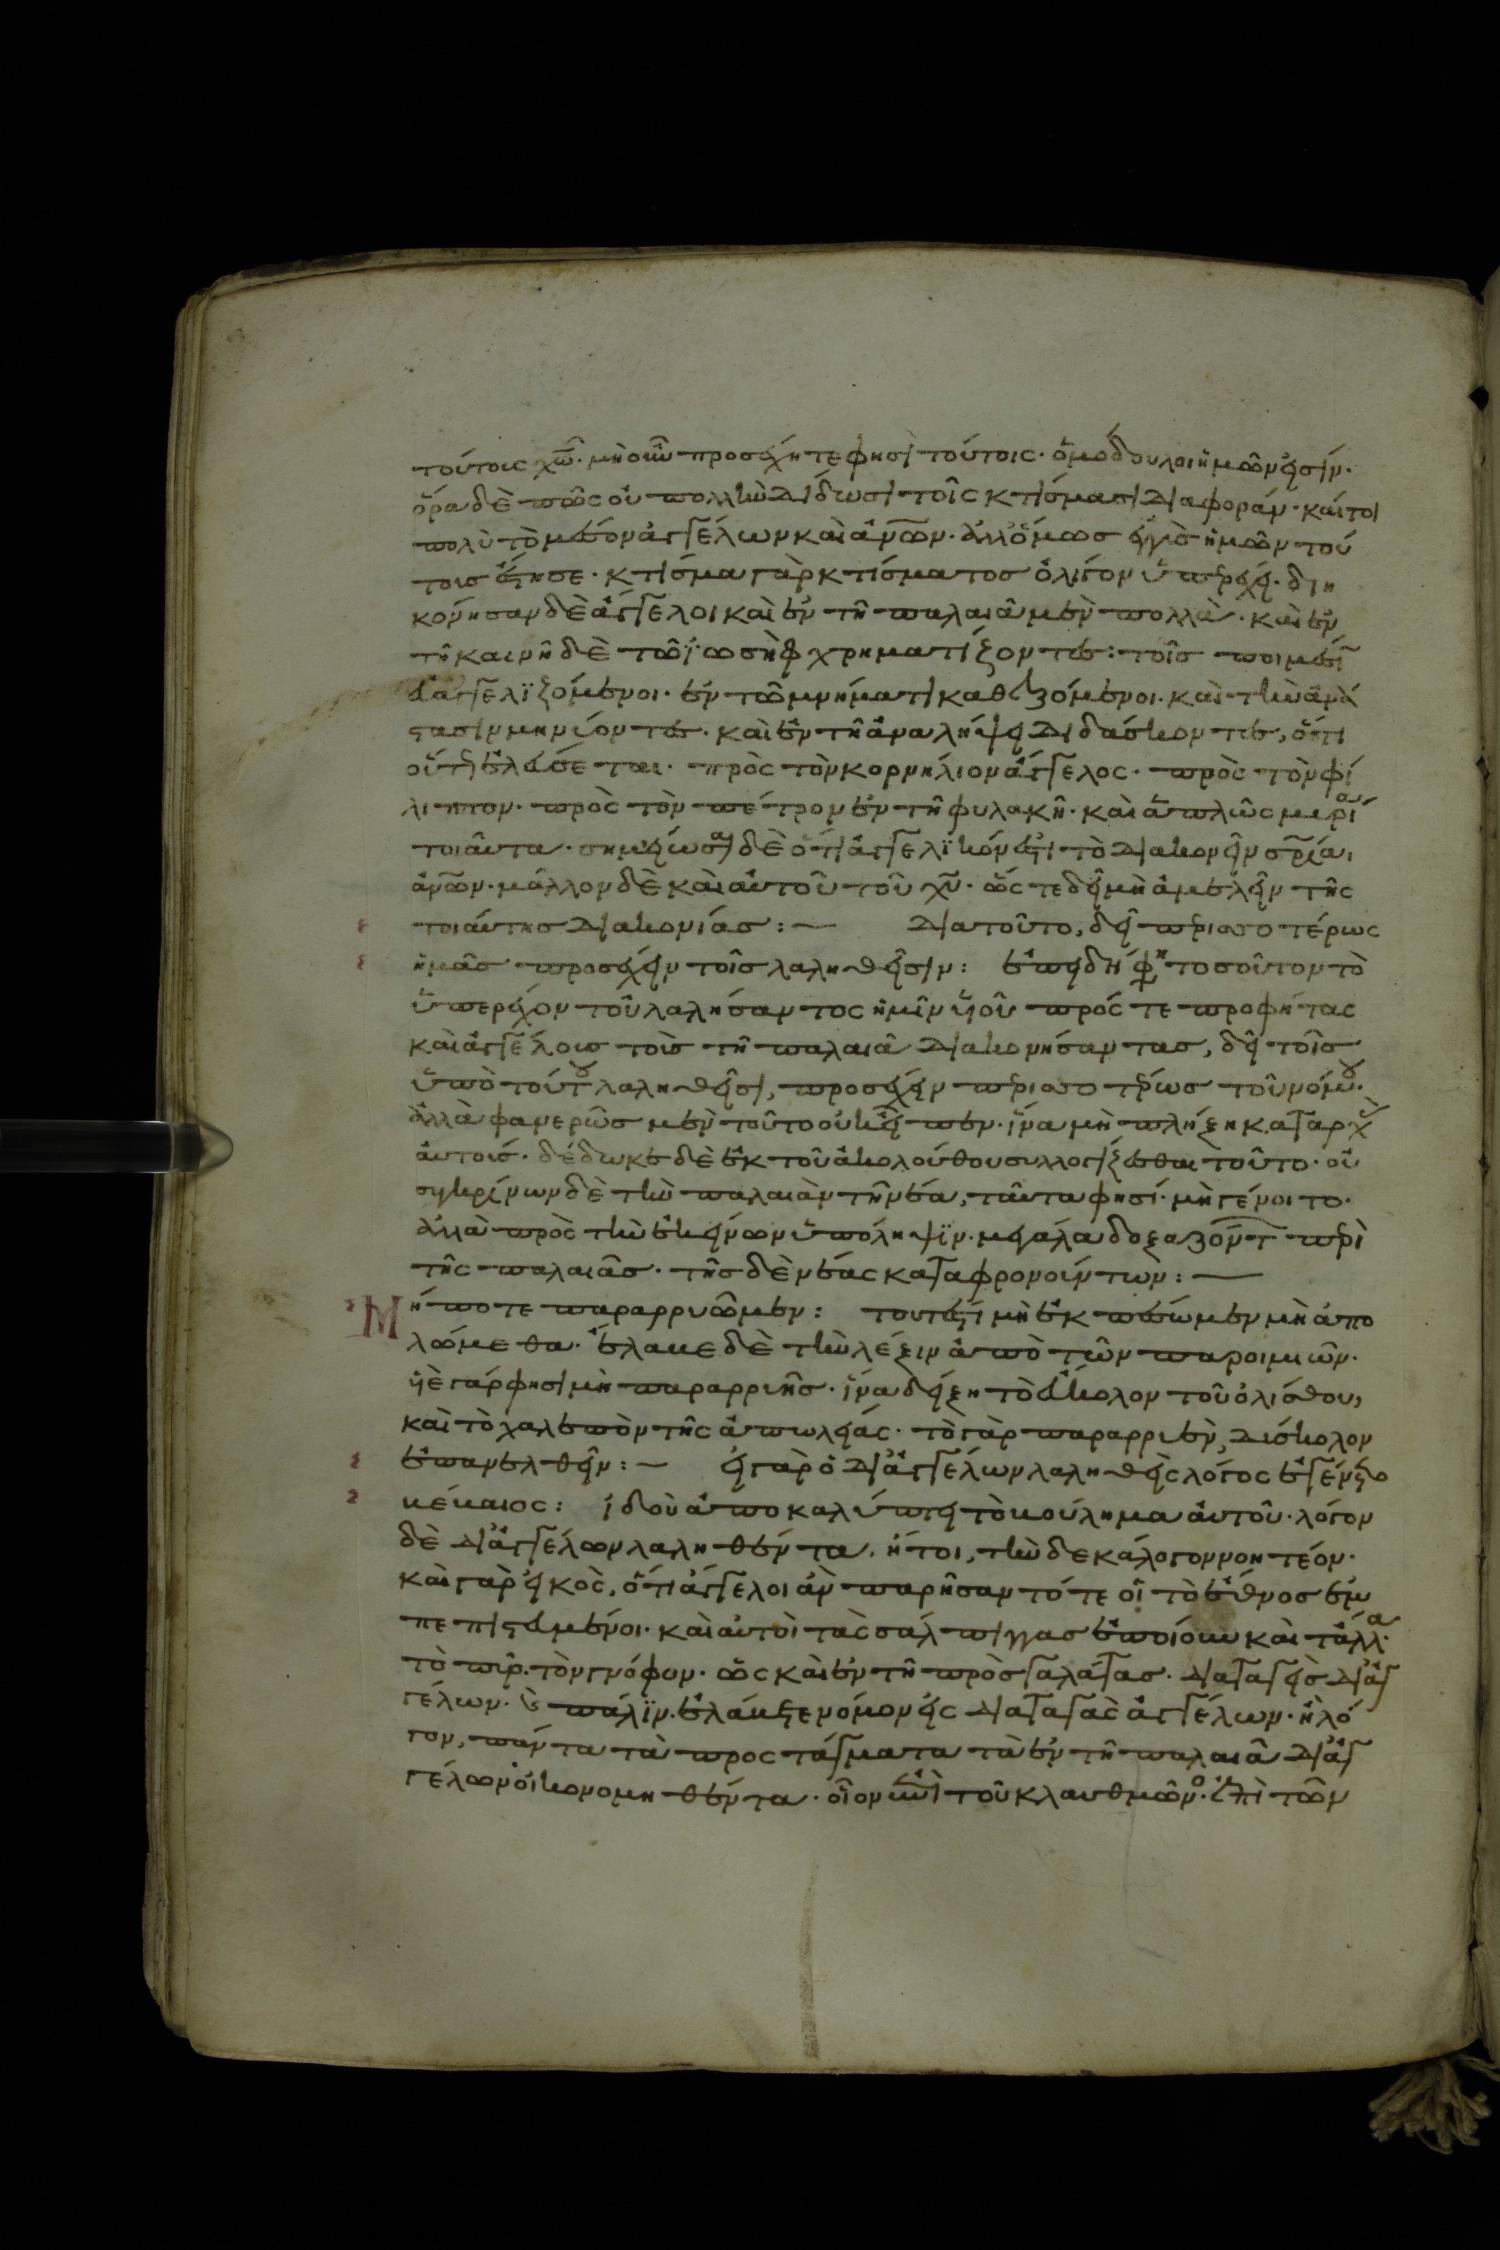 τούτοις χω̅. μὴ οὖν προσέχητε φησὶ τούτοις· ὁμόδουλοι ἡμῶν εἰσίν·
ὅρα δὲ πῶς οὐ πολλὴν δίδωσι τοῖς κτίσμασι διαφοράν· καίτοι
πολὺ τὸ μέσον ἀγγέλων καὶ ἀνων· ἀλλ' ὅμως ἐγγὺς ἡμῶν τού
τοις ἔστησε· κτίσμα γὰρ κτίσματος ὀλίγον ὑπερέχει· διη
κόνησαν δὲ ἄγγελοι καὶ ἐν τῇ παλαιᾷ μὲν πολλὰ· καὶ ἐν
τῇ καινῇ δὲ τῷ ἰωσὴφ χρηματίζοντες: τοῖς ποιμέσι
εὐαγγελϊζόμενοι· ἐν τῷ μνήματι καθεζόμενοι· καὶ τὴν ἀνά
στασιν μηνύοντες· καὶ ἐν τῇ ἀναλήψει διδάσκοντες, ὅτι
οὕτως ἐλεύσεται· πρὸς τὸν κορνήλιον ἄγγελος· πρὸς τὸν φί
λιππον· πρὸς τὸν πέτρον ἐν τῇ φυλακῇ· καὶ ἁπλῶς μυρί
τοιαῦτα· σημείωσαι δὲ ὅτι ἀγγελϊκόν ἐστι τὸ διακονεῖν σρίαι
ἀνων· μᾶλλον δὲ καὶ αὐτοῦ τοῦ χυ· ὥστε δεῖ μὴ ἀμελεῖν τῆς
τοιαύτης διακονίας: — διατοῦτο, δεῖ περισσοτέρως
ἡμᾶς προσέχειν τοῖς λαληθεῖσιν: ἐπειδὴ φη τοσοῦτον τὸ
ὑπερέχον τοῦ λαλήσαντος ἡμῖν υἱοῦ πρός τε προφήτας
καὶ ἀγγέλοις τοὶς τῇ παλαιᾷ διακονήσαντας, δεῖ τοῖς
ὑπὸ τούτου λαληθεῖσι, προσέχειν περισσοτέρως τοῦ νόμου·
ἀλλὰ φανερῶς μὲν τοῦτο οὐκ εἶπεν· ἵνα μὴ πλήξη καταρχὰς
αὐτούς· δέδωκε δὲ ἐκ τοῦ ἀκολούθου συλλογίζεσθαι τοῦτο· οὐ
συγκρίνων δὲ τὴν παλαιὰν τῇ νέα, ταῦτα φησί· μὴ γένοιτο·
ἀλλὰ πρὸς τὴν ἐκείνων ὑπόληψϊν· μεγάλα δοξαζόντ περὶ
τῆς παλαιᾶς· τῆς δὲ νέας καταφρονούντων: —
Μήποτε παραρρυῶμεν: τουτέστι μὴ ἐκπέσωμεν μὴ ἀπο
λώμεθα· ἔλαβε δὲ τὴν λέξιν ἀπὸ τῶν παροιμιῶν·
υἱὲ γάρ φησι μὴ παραρρυῇς· ἵνα δείξη τὸ εὔκολον τοῦ ὀλίσθου,
καὶ τὸ χαλεπὸν τῆς ἀπωλείας· τὸ γὰρ παραρρυὲν, δύσκολον
ἐπανελθεῖν: — εἰ γὰρ ὁ δι' ἀγγέλων λαληθεὶς λόγος ἐγένετο
βέβαιος: ἰδοὺ ἀποκαλύπτει τὸ βούλημα αὐτοῦ· λόγον
δὲ δι' ἀγγέλων λαληθέντα, ἤτοι, τὴν δεκάλογον νοητέον·
καὶ γὰρ εἰκὸς, ὅτι ἄγγελοι ἂν παρῆσαν τότε οἱ τὸ ἔθνος ἐμ
πεπιστευμένοι· καὶ αὐτοὶ τὰς σάλπιγγας ἐποίουν καὶ τἄλλα·
τὸ πῦρ· τὸν γνόφον· ὡς καὶ ἐν τῇ πρὸς γαλάτας· διαταγεὶς δι' ἀγ
γέλων· καὶ πάλϊν· ἐλάβετε νόμον εἰς διαταγὰς ἀγγέλων· ἢ λό
γον, πάντα τὰ προστάγματα τὰ ἐν τῇ παλαιᾷ δι' ἀγ
γέλων οἰκονομηθέντα· οἷον ἐπὶ τοῦ κλαυθμῶνος· ἐπὶ τῶν